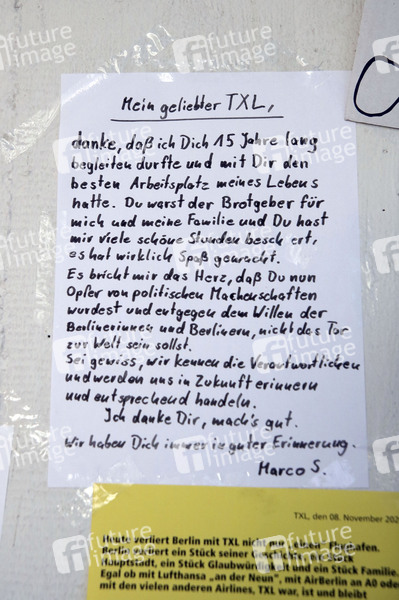 Mein geliebter TXL,
danke, daß ich Dich 15 Jahre lang
begleiten durfte und mit Dir den
besten Arbeitsplatz meines Lebens
hatte. Du warst der Brotgeber für
mich und meine Familie und Du hast
mir viele schöne Stunden beschert,
es hat wirklich Spaß gemacht.
Es bricht mir das Herz, daß Du nun
Opfer von politischen Machenschaften
wurdest und entgegen dem Willen der
Berlinerinnen und Berlinern, nicht das Tor
zur Welt sein sollst.
Sei gewiss, wir kennen die Verantwortlichen
und werden uns in Zukunft erinnern
und entsprechend handeln.
Ich danke Dir, mach's gut.
Wir haben Dich immer in guter Erinnerung.
Marco S.
TXL, den 08. November 202
Heute verliert Berlin mit TXL nicht nur einen Flughafen.
Berlin verliert ein Stück seiner Geschichte, ein Stück
Hauptstadt, ein Stück Glaubwürdigkeit und ein Stück Familie.
Egal ob mit Lufthansa „an der Neun", mit AirBerlin an A0 ode
mit den vielen anderen Airlines, TXL war, ist und bleibt
future image